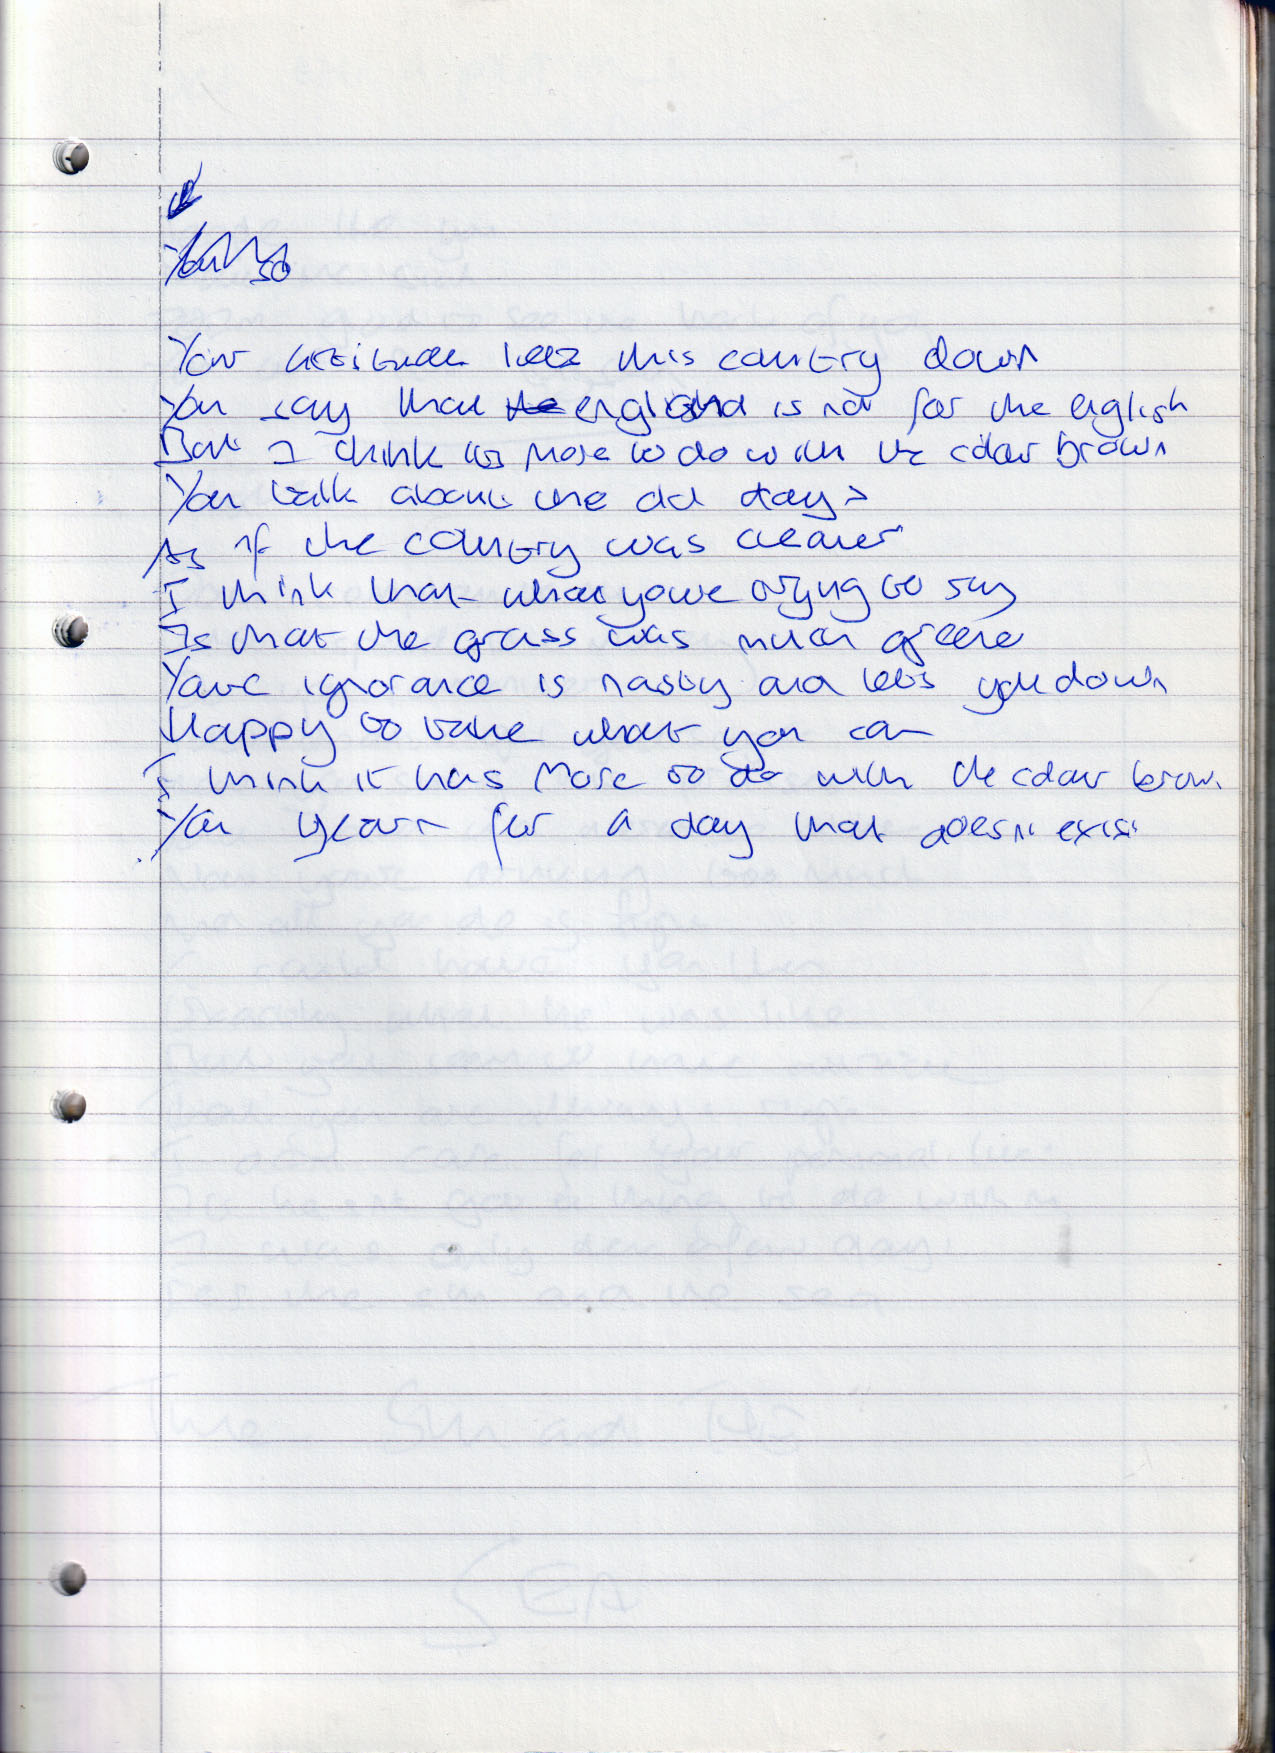 so
Your attitude lets this country down
You say that the england is not for the english
But I think its more to do with the colour brown
You talk about the old days
As if the country was cleaner
I think that what youre trying to say
Is that the grass was much greene
Youre ignorance is nasty and lets you down
Happy to take what you can
I think it has more to do with the colour brown
You yearn for a day that doesnt exist